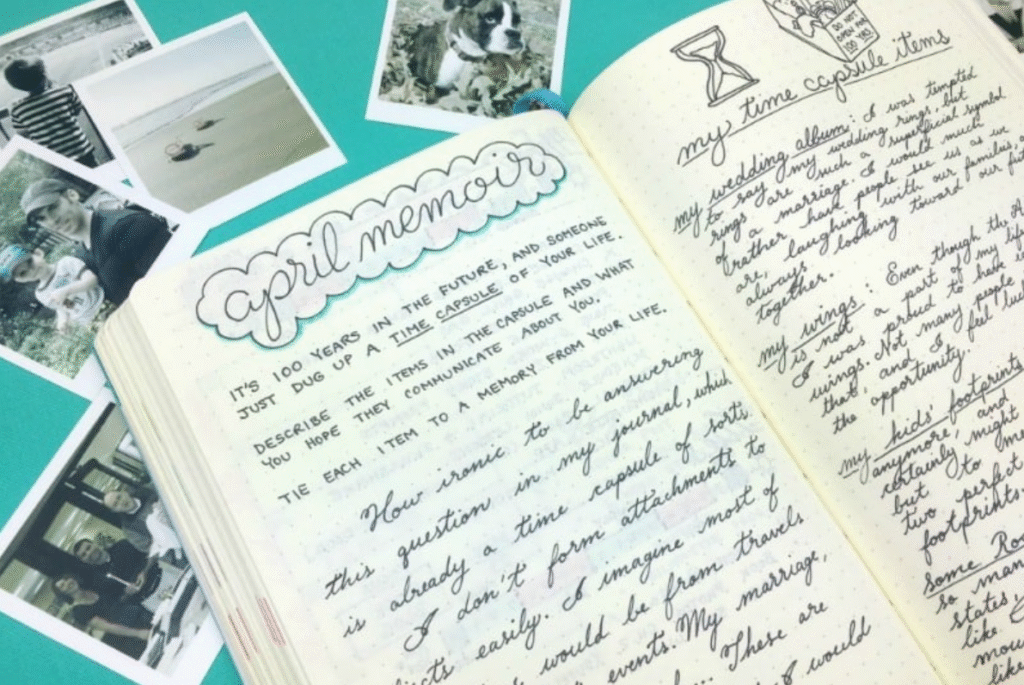 april memoir
IT'S 100 YEARS IN THE FUTURE, AND SOMEONE
JUST DUG UP A TIME CAPSULE OF YOUR LIFE.
DESCRIBE THE ITEMS IN THE CAPSULE AND WHAT
YOU HOPE THEY COMMUNICATE ABOUT YOU.
TIE EACH ITEM TO A MEMORY FROM YOUR LIFE.
How ironic to be answering
this question in my journal, which
is already a time capsule of sorts.
I don't form attachments to
easily. I imagine most of
would be from travels
events. My marriage,
These are
I would
DO NOT
OPEN FOR
100 YRS
my time capsule items
my wedding album: I was tempted
to say my wedding rings, but
rings are such a superficial symbol
of a marriage. I would much
rather have people see us as we
are, laughing with our families,
always looking toward our
together.
my wings: Even though the
is not a part of my
I was proud to have
wings. Not many people
that, and I feel
the opportunity.
my kids' footprints
anymore, and
certainly might
but to me
two perfect
footprints
some
so many
states,
like
like